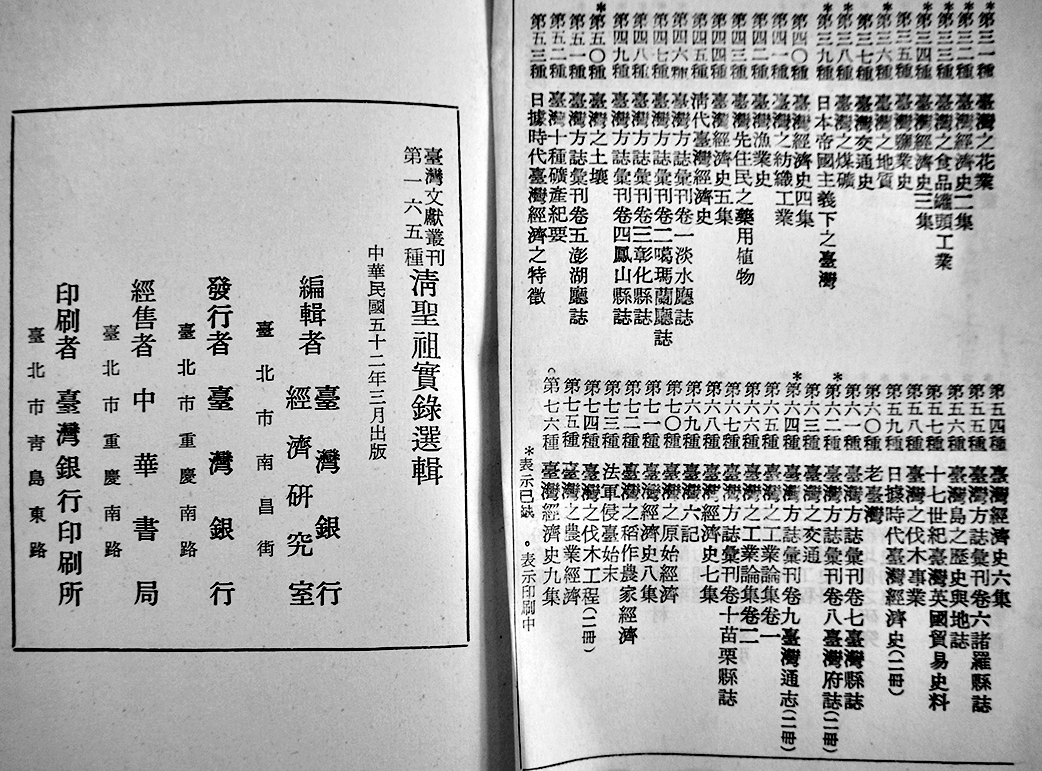 *第三一種 臺灣之花業
*第三二種 臺灣經濟史二集
*第三三種 臺灣之食品罐頭工業
*第三四種 臺灣經濟史三集
第三五種 臺灣鹽業史
*第三六種 臺灣之地質
第三七種 臺灣交通史
*第三八種 臺灣之煤礦
*第三九種 日本帝國主義下之臺灣
第四〇種 臺灣經濟史四集
第四一種 臺灣之紡織工業
第四二種 臺灣漁業史
第四三種 臺灣先住民之藥用植物
第四四種 臺灣經濟史五集
第四五種 清代臺灣經濟史
第四六種 臺灣方誌彙刊卷一淡水廳誌
第四七種 臺灣方誌彙刊卷二噶瑪蘭廳誌
第四八種 臺灣方誌彙刊卷三彰化縣誌
第四九種 臺灣方誌彙刊卷四鳳山縣誌
*第五〇種 臺灣之土壤
第五一種 臺灣方誌彙刊卷五澎湖廳誌
第五二種 臺灣十種礦產紀要
第五三種 日據時代臺灣經濟之特徵
第五四種 臺灣經濟史六集
第五五種 臺灣方誌彙刊卷六諸羅縣誌
第五六種 臺灣島之歷史與地誌
第五七種 十七世紀臺灣英國貿易史料
第五八種 臺灣之伐木事業
第五九種 日據時代臺灣經濟史(二冊)
第六〇種 老臺灣
第六一種 臺灣方誌彙刊卷七臺灣縣誌
*第六二種 臺灣方誌彙刊卷八臺灣府誌(二冊)
第六三種 臺灣之交通
*第六四種 臺灣方誌彙刊卷九臺灣通志(二冊)
第六五種 臺灣之工業論集卷一
第六六種 臺灣之工業論集卷二
第六七種 臺灣方誌彙刊卷十苗栗縣誌
第六八種 臺灣經濟史七集
第六九種 臺灣六記
第七〇種 臺灣之原始經濟
第七一種 臺灣經濟史八集
第七二種 臺灣之稻作農家經濟
第七三種 法軍侵臺始末
第七四種 臺灣之伐木工程(二冊)
第七五種 臺灣之農業經濟
°第七六種 臺灣經濟史九集
*表示已缺 °表示印刷中
臺灣文獻叢刊
第一六五種
清聖祖實錄選輯
中華民國五十二年三月出版
編輯者 臺灣銀行
經濟研究室
臺北市南昌街
發行者 臺灣銀行
臺北市重慶南路
經售者 中華書局
臺北市重慶南路
印刷者 臺灣銀行印刷所
臺北市青島東路